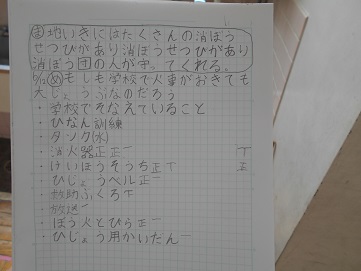 ま 地いきにはたくさんの消ぼう
せつびがあり消ぼうせつびがあり
消ぼう団の人が守ってくれる。
め もしも学校で火事がおきても
大じょうぶなのだろう
・学校でそなえていること
・ひなん訓練
・タンク(水)
・消火器正正一
・けいほうそうち正下
・ひじょうベル正一
・救助ふくろ下
・放送一
・ぼう火とびら正一
・ひじょう用かいだん一